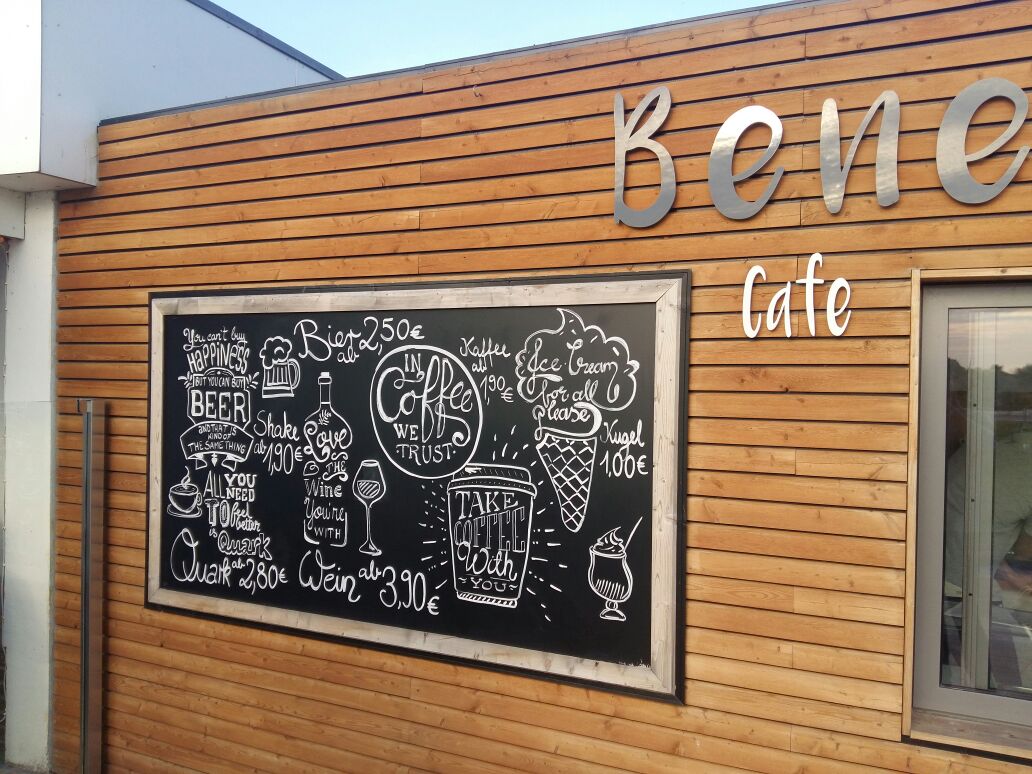 Bene
Cafe
You can't buy
HAPPINESS
BUT YOU CAN BUY
BEER
AND THAT IS
KIND OF
THE SAME THING
Bier 2,50€
ab
Shake
ab 1,90€
Love
THE
Wine
You're
WITH
IN
Coffee
WE
TRUST
Kaffee
ab
1,90€
Ice Cream
for all
Please
Kugel
1,00€
ALL YOU
NEED
TO feel
better
is
Quark
Quark ab 2,80€
Wein ab 3,90€
TAKE
COFFEE
With
YOU